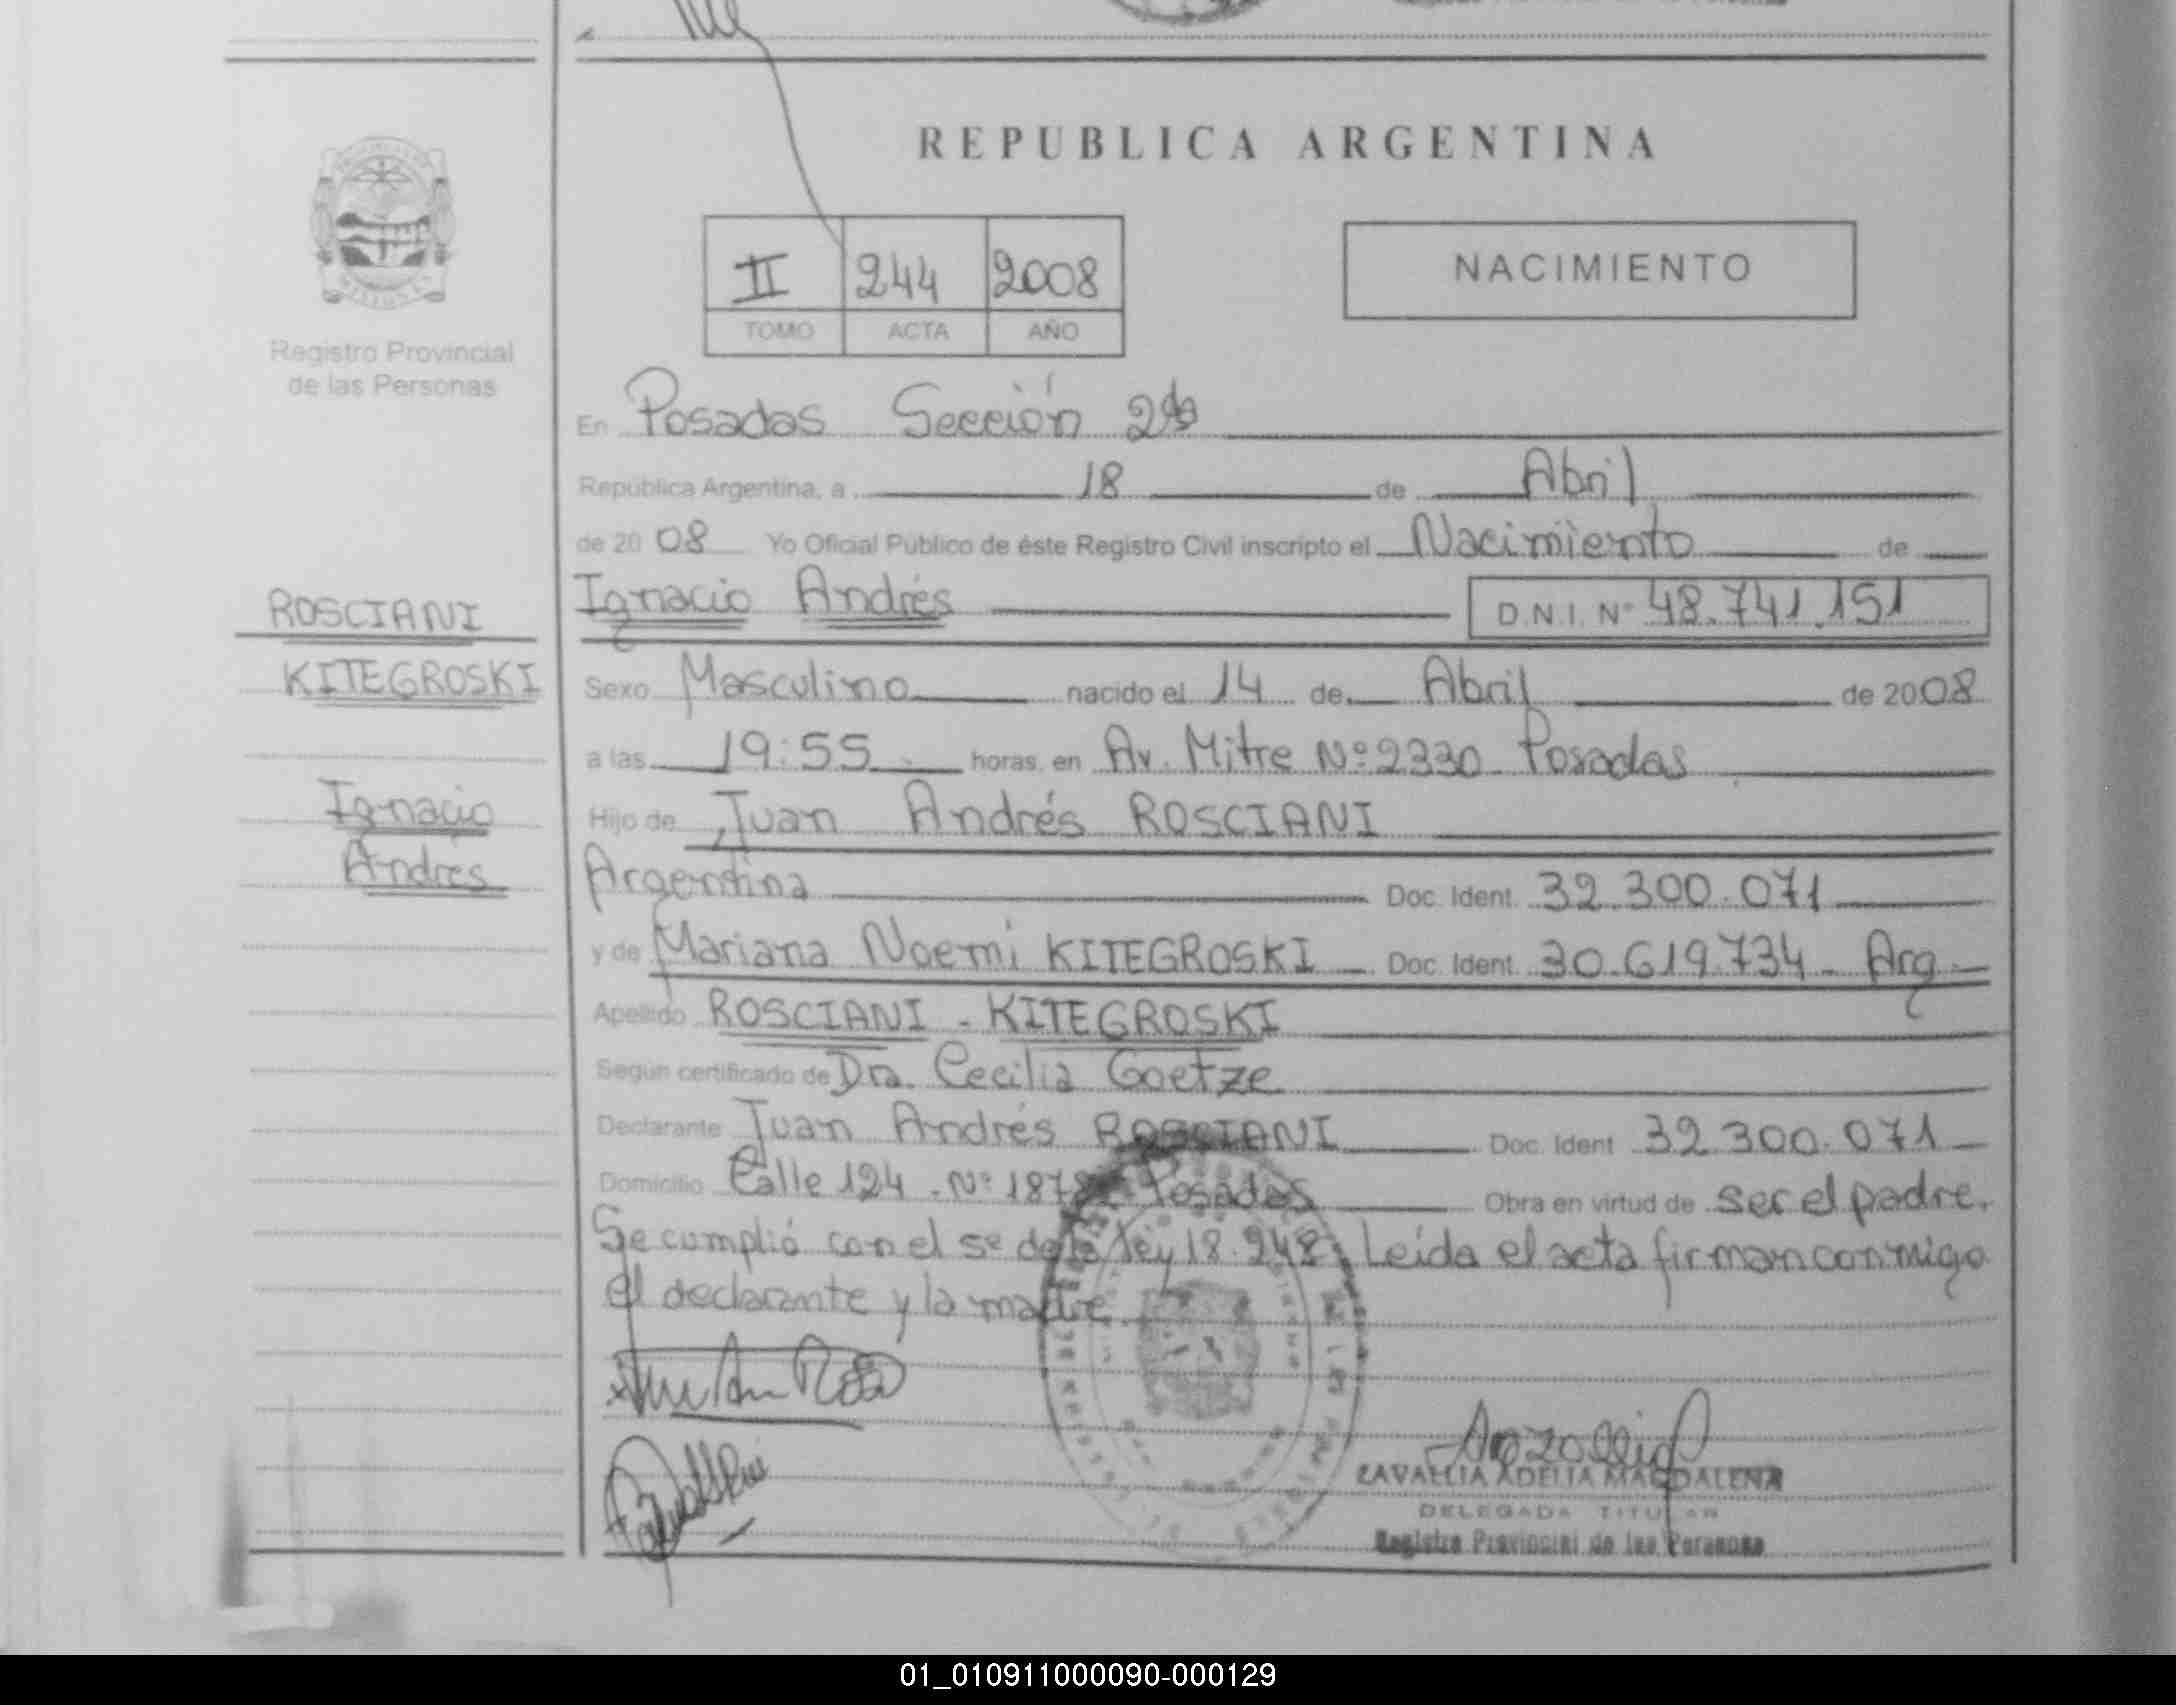 REPUBLICA ARGENTINA
II 244 2008
TOMO ACTA AÑO
NACIMIENTO
Registro Provincial
de las Personas
ROSCIANI
KITEGROSKI
Ignacio
Andrés
En Posadas Sección 2da
República Argentina, a 18 de Abril
de 2008 Yo Oficial Público de éste Registro Civil inscripto el Nacimiento de
Ignacio Andrés D.N.I. Nº 48.741.151
Sexo Masculino nacido el 14 de Abril de 2008
a las 19:55 horas, en Av. Mitre Nº 2330 Posadas
Hijo de Juan Andrés ROSCIANI
Argentina Doc. Ident. 32.300.071
y de Mariana Noemi KITEGROSKI Doc. Ident. 30.619.734 Arg.
Apellido ROSCIANI - KITEGROSKI
Según certificado de Dra. Cecilia Goetze
Declarante Juan Andrés ROSCIANI Doc. Ident 32.300.071
Domicilio Calle 124 - Nº Posadas Obra en virtud de ser el padre.
Se cumplió con el se de la ley 18.248 Leída el acta firman conmigo
el declarante y la madre.
ZAVALLIA ADELIA MAGDALENA
DELEGADA TITULAR
Registro Provincial de las Personas
01_010911000090-000129